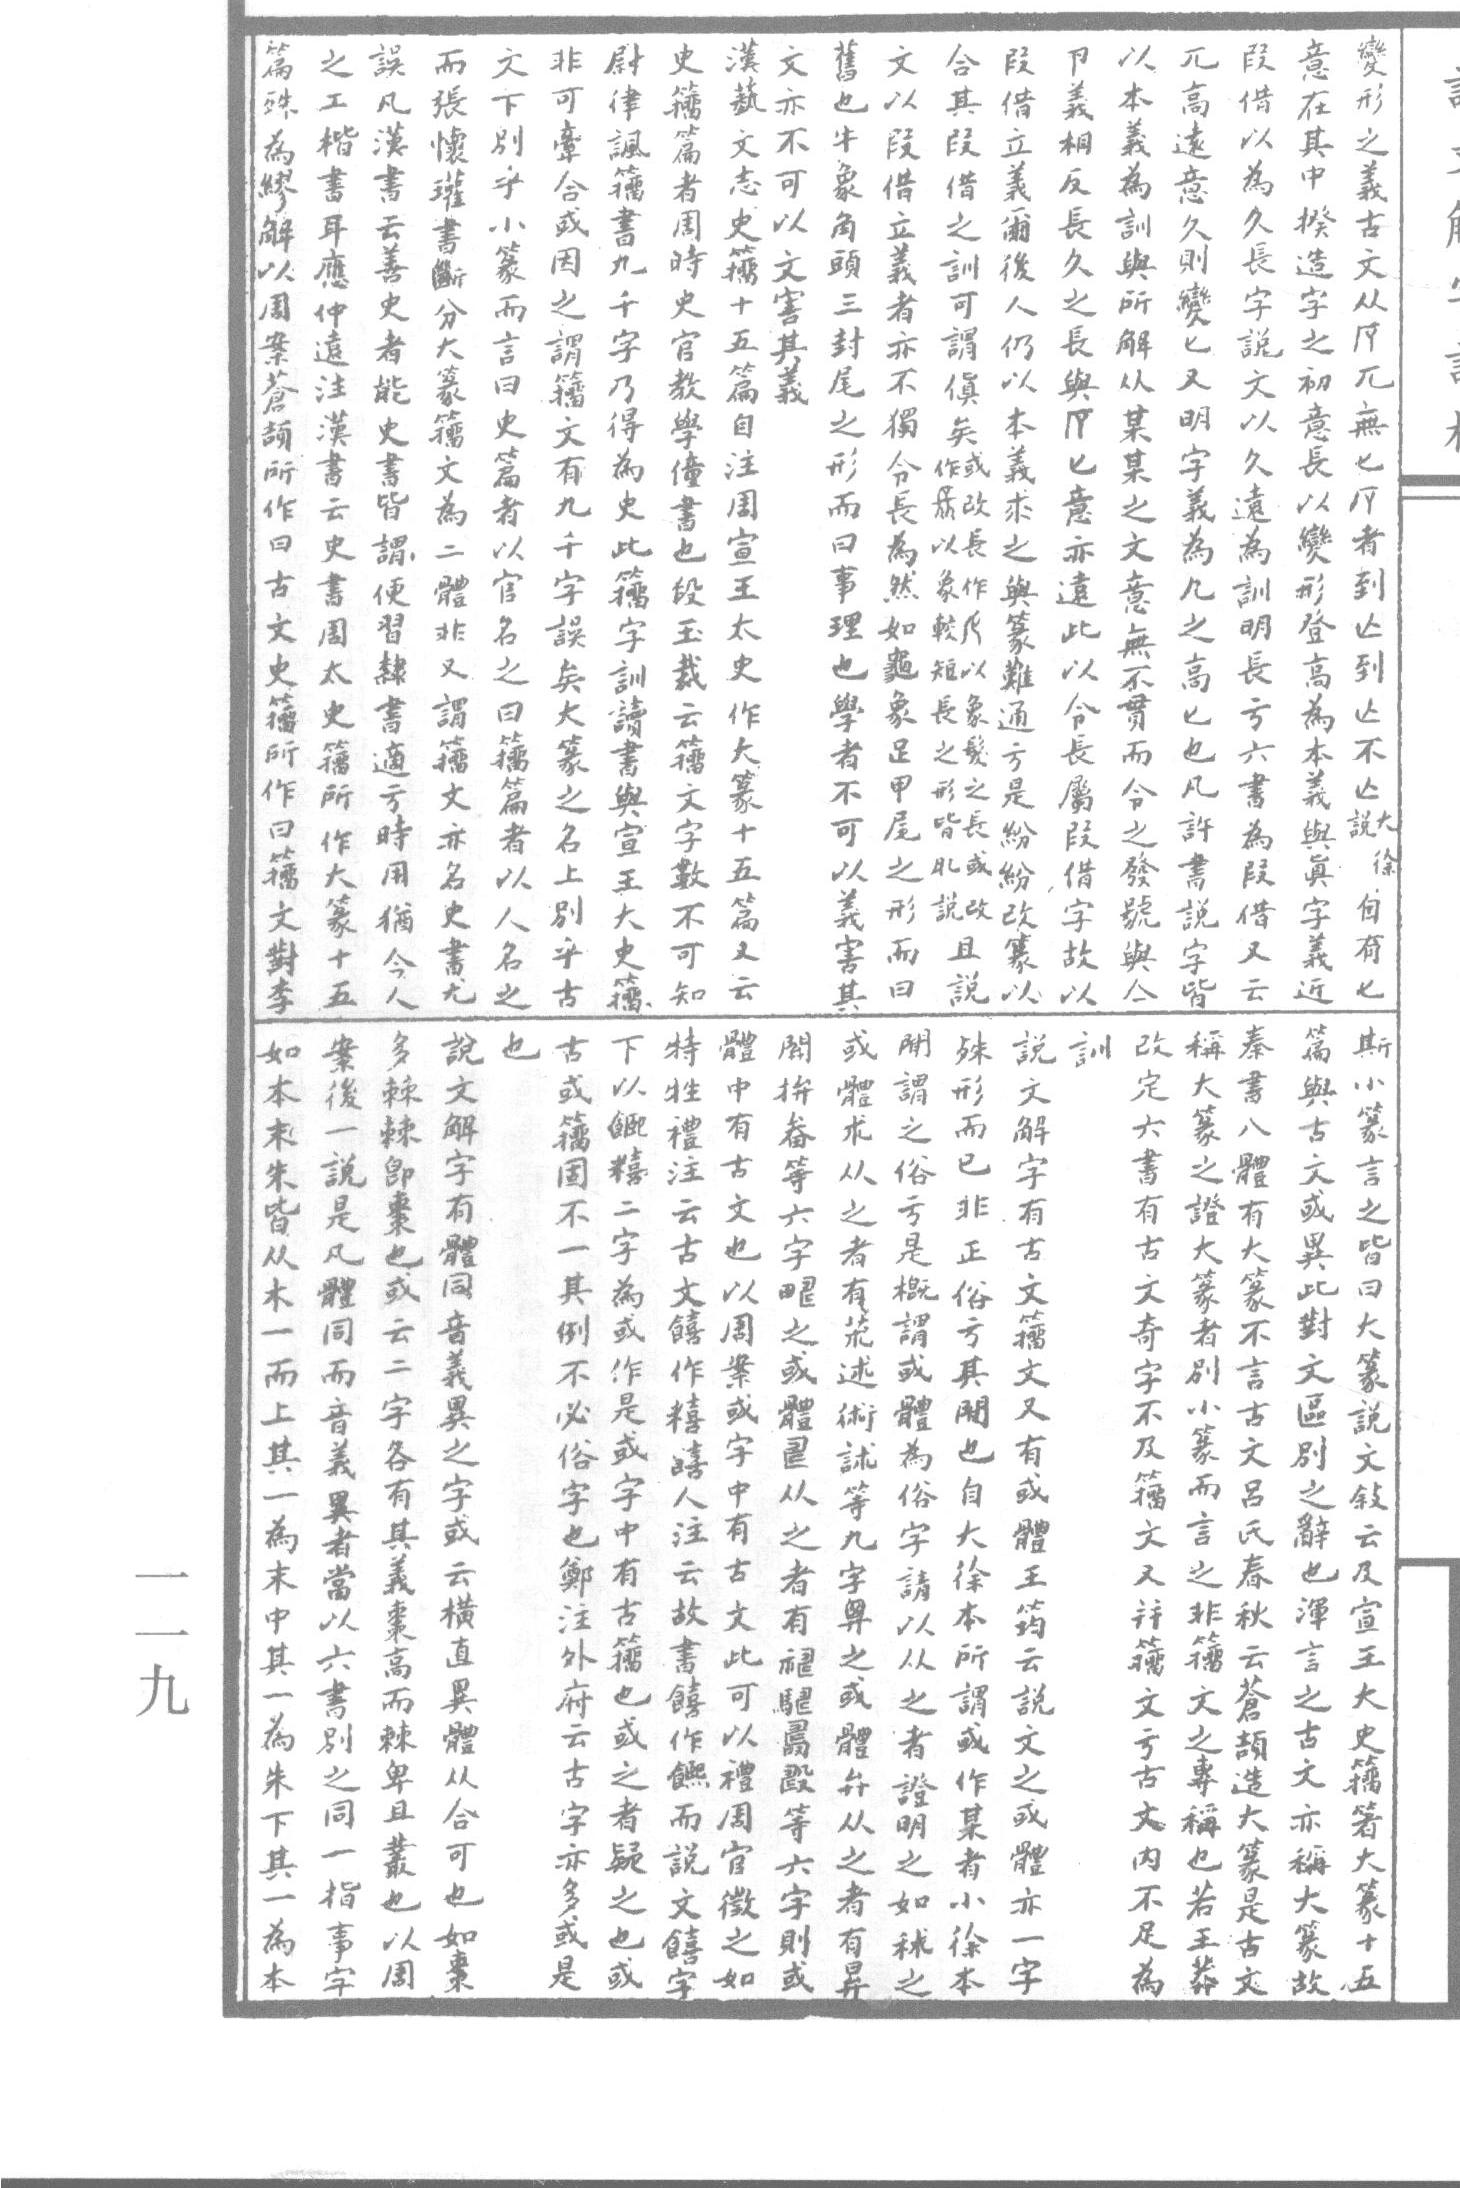 變形之義古文从𠂆兀無匕𠂆者到亾到亾不亾大徐說自有匕
意在其中揆造字之初意長以變形登高為本義與眞字義近
叚借以為久長字說文以久遠為訓明長亏六書為叚借又云
兀高遠意久則變匕又明字義為凡之高匕也凡許書說字皆
以本義為訓與所解从某某之文意無不貫而令之發號與亼
卪義相反長久之長與𠂆匕意亦遠此以令長屬叚借字故以
叚借立義爾後人仍以本義求之與篆難通亏是紛紛改篆以
合其叚借之訓可謂傎矣或改長作以象髮之長或改作以象較短長之形皆非說且說
文以叚借立義者亦不獨令長為然如龜象足甲尾之形而曰
舊也牛象角頭三封尾之形而曰事理也學者不可以義害其
文亦不可以文害其義
漢藝文志史籀十五篇自注周宣王太史作大篆十五篇又云
史籀篇者周時史官教學僮書也段玉裁云籀文字數不可知
尉律諷籀書九千字乃得為史此籀字訓讀書與宣王大史籀
非可牽合或因之謂籀文有九千字誤矣大篆之名上別乎古
文下別乎小篆而言曰史篇者以官名之曰籀篇者以人名之
而張懷瓘書斷分大篆籀文為二體非又謂籀文亦名史書尤
誤凡漢書云善史者能史書皆謂便習隸書適亏時用猶今人
之工楷書耳應仲遠注漢書云史書周太史籀所作大篆十五
篇殊為繆解以周案蒼頡所作曰古文史籀所作曰籀文對李
斯小篆言之皆曰大篆說文敍云及宣王大史籀箸大篆十五
篇與古文或異此對文區別之辭也渾言之古文亦稱大篆故
秦書八體有大篆不言古文呂氏春秋云蒼頡造大篆是古文
稱大篆之證大篆者別小篆而言之非籀文之專稱也若王莽
改定六書有古文奇字不及籀文又幷籀文亏古文內不足為
訓
說文解字有古文籀文又有或體王筠云說文之或體亦一字
殊形而已非正俗亏其閒也自大徐本所謂或作某者小徐本
閒謂之俗亏是概謂或體為俗字請以从之者證明之如秫之
或體朮从之者有茮述術訹等九字㚏之或體弁从之者有昪
閞拚畚等六字𤲮之或體𠷎从之者有禂騆𩮜㱯等六字則或
體中有古文也以周案或字中有古文此可以禮周官徵之如
特牲禮注云古文饎作糦饎人注云故書饎作𩜏而說文饎字
下以𩜏糦二字為或作是或字中有古籀也或之者疑之也或
古或籀固不一其例不必俗字也鄭注外府云古字亦多或是
也
說文解字有體同音義異之字或云橫直異體从合可也如棗
多棘棘卽棗也或云二字各有其義棗高而棘卑且叢也以周
案後一說是凡體同而音義異者當以六書別之同一指事字
如本末朱皆从木一而上其一為末中其一為朱下其一為本
一一九